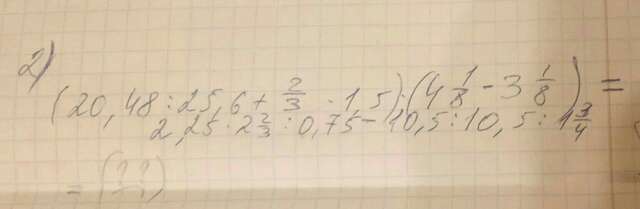 2)
(20,48:25,6+ 2/3 · 1,5):(4 1/8 - 3 1/8) =
2,25·2 2/3:0,75-10,5:10,5:1 3/4
= (